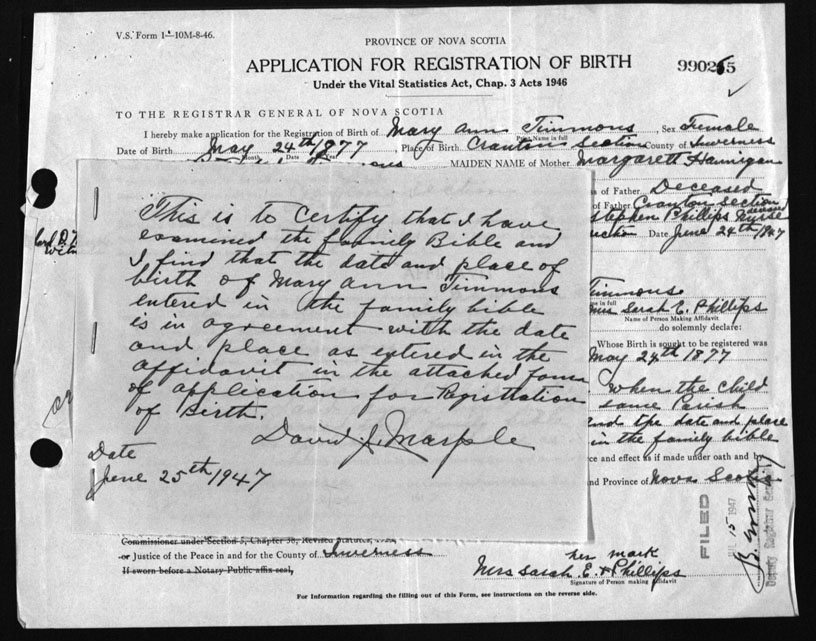 V.S. Form 1—10M-8-46.
PROVINCE OF NOVA SCOTIA
APPLICATION FOR REGISTRATION OF BIRTH
990265
Under the Vital Statistics Act, Chap. 3 Acts 1946
TO THE REGISTRAR GENERAL OF NOVA SCOTIA
I hereby make application for the Registration of Birth of Mary Ann Timmons, Sex Female
Print Name in full
Date of Birth May 24th 1877, Place of Birth Cranton Section County of Inverness
Month Date Year
MAIDEN NAME of Mother Margarett Hannigan
of Father Deceased
of Father Cranton Section
Stephen Phillips
Date June 24th 1947
This is to certify that I have
examined the family Bible and
I find that the date and place of
birth of Mary Ann Timmons
entered in the family bible
is in agreement with the date
and place as extered in the
affidavit in the attached form
of application for Registration
of Birth.
David J. Marple
Date
June 25th 1947
Timmons
Mrs Sarah E. Phillips
Name of Person Making Affidavit
do solemnly declare:
Whose Birth is sought to be registered was
May 24th 1877
when the child
same Parish
and the date and place
in the family bible
ce and effect as if made under oath and by
nd Province of Nova Scot
FILED
15 1947
Deputy Registrar General
Commissioner under Section 5, Chapter 38, Revised Statutes,
or Justice of the Peace in and for the County of Inverness
If sworn before a Notary Public affix seal,
her mark
Mrs Sarah E. x Phillips
Signature of Person making Affidavit
For Information regarding the filling out of this Form, see instructions on the reverse side.